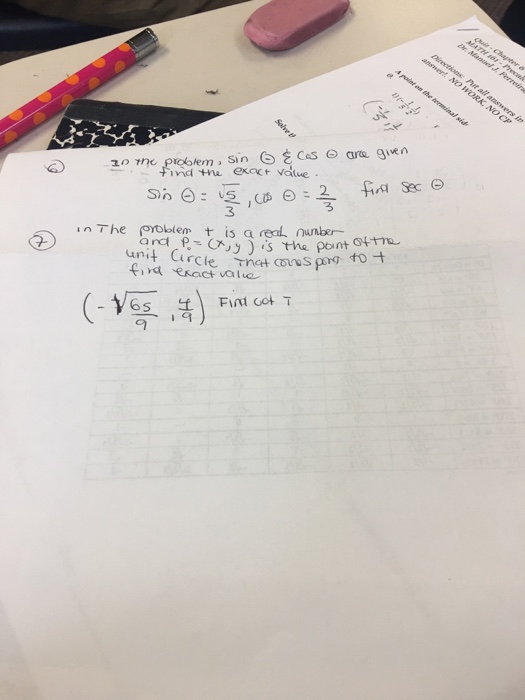 Quiz - Chapter 6
MATH 161 - Precalc
Dr. Manuel J. Ferreira
Directions: Put all answers in
answer! NO WORK, NO CP
A point on the terminal side
Solve
⑥ In the problem, sin θ & cos θ are given
find the exact value.
sin θ = √5/3, cos θ = 2/3 find sec θ
⑦ in The problem t is a real number
and P = (x,y) is the point of the
unit Circle That corresponp to t
find exact value
(-√65/9, 4/9) Find cot T